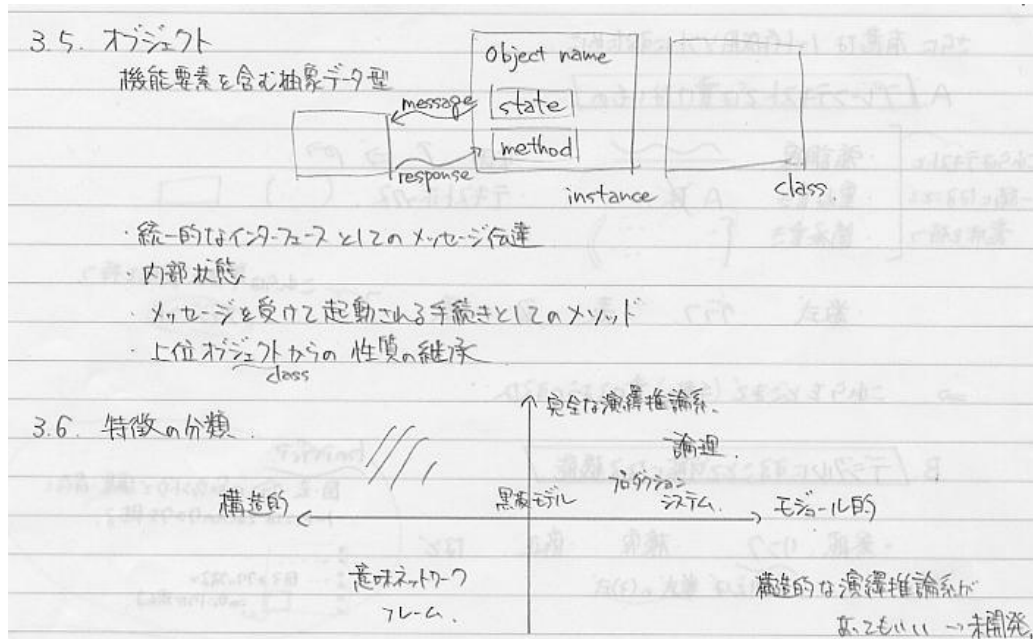 3.5. オブジェクト
機能要素を含む抽象データ型
Object name
message
state
method
response
instance
class.
・統一的なインターフェースとしてのメッセージ伝達
・内部状態
・メッセージを受けて起動される手続きとしてのメソッド
・上位オブジェクトからの性質の継承
class
3.6. 特徴の分類.
完全な演繹推論系.
論理.
黒板モデル
プロダクション
システム.
構造的
モジュール的
意味ネットワーク
フレーム.
構造的な演繹推論系が
あってもいい → 未開発